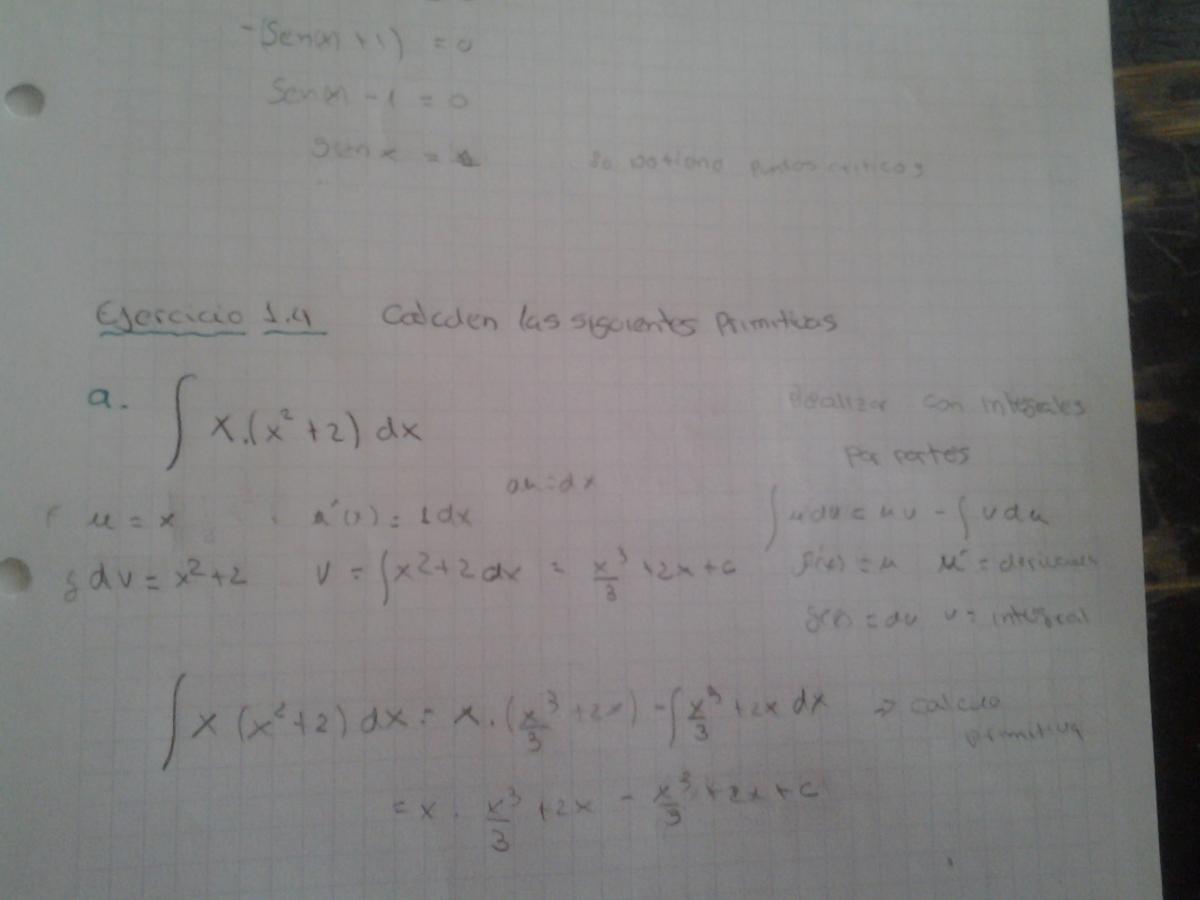 -(Sen(x) + 1) = 0
Sen x - 1 = 0
sen x =
puntos criticos
Ejercicio 1.4 Calculen las siguientes Primitivas
a. ∫ x.(x² + 2) dx
Realizar con integrales
Por partes
du = dx
u = x u'(x) = 1 dx ∫ u dv = uv - ∫ v du
dv = x² + 2 v = ∫ x² + 2 dx = x³/3 + 2x + c f(x) = u u' =
g(x) = dv v = integral
∫ x (x² + 2) dx = x . (x³/3 + 2x) - ∫ x³/3 + 2x dx => calculo
primitiva
= x . x³/3 + 2x - x³/3 + 2x + c